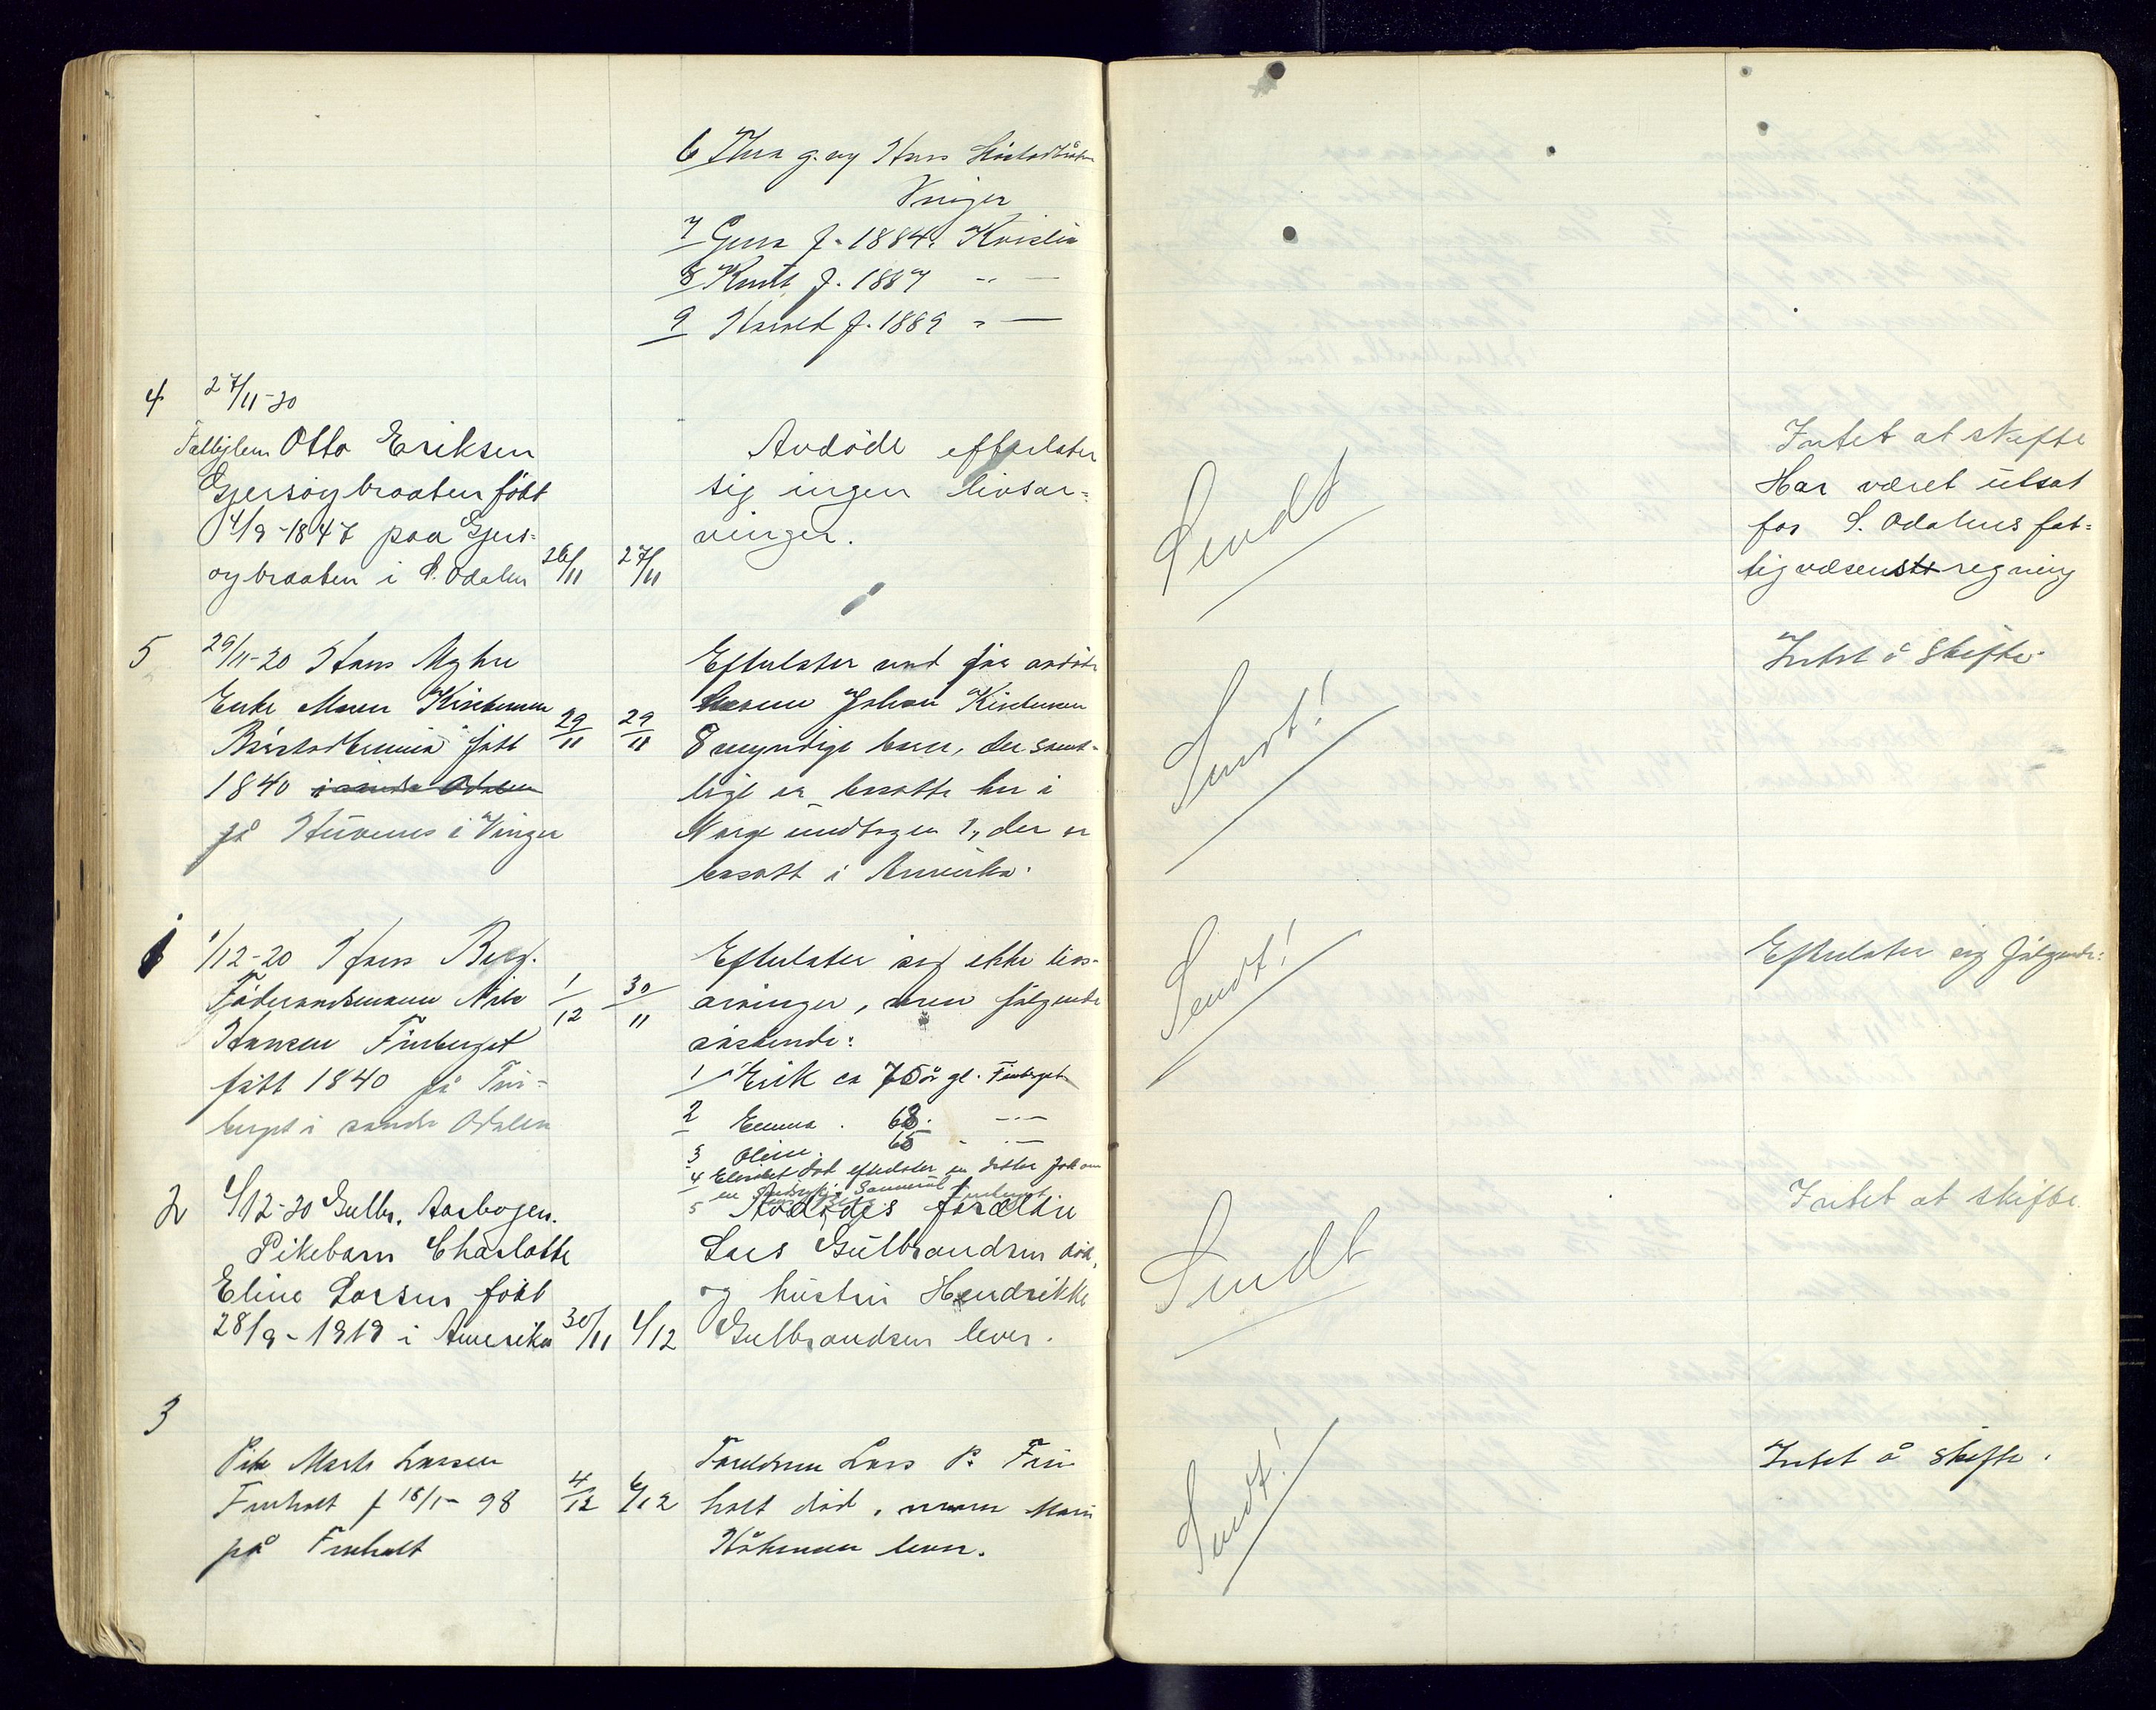 6 Thea g. og Hans
Vinger
7 Gina f. 1884. Kristia
8 Knut f. 1887 " —
9 Harald f. 1889 " —
4 27/11-20
Otto Eriksen
Gjersøybraaten født
4/9-1847 paa Gjers-
øybraaten i S. Odalen 26/11 27/11
Avdøde efterlater
sig ingen livsar-
vinger.
Sendt
Intet at skifte
Har været utsat
for S. Odalens fat-
tigvæsens regning
5 29/11-20 Hans Myhre
Enke Maren Kristiansen
født 29/11 29/11
1840 i søndre Odalen
på Stuvenes i Vinger
Efterlater med før avdøde
Johan Kristiansen
8 myndige barn, der samt-
lige er bosatte her i
Norge undtagen 1, der er
bosatt i Amerika.
Sendt!
Intet å skifte.
1 1/12-20 Hans Berg.
Føderaadsmann Nils 1/12 30/11
Hansen Finberget
født 1840 på Fin-
berget i søndre Odalen
Efterlater sig ikke livs-
arvinger, men følgende
søskende:
1 Erik ca 75 år gl. Finberget
2 Emma . 68. — " —
3 Oline. 65 - " —
4 Elisabet død efterlater en datter
5
Sendt!
Efterlater sig følgende:
2 4/12-20 Gulbr. Aarbogen.
Pikebarn Charlotte
Eline Larsen født
28/9-1919 i Amerika 30/11 4/12
Avdødes forældre
Lars Gulbrandsen død,
og hustru Hendrikke
Gulbrandsen lever.
Sendt
Intet at skifte.
3
Pike Marte Larsen
Finholt f 18/1-98 4/12 6/12
på Finholt
Foreldrene Lars P. Fin-
holt død, moren Mari
Håkensen lever.
Sendt!
Intet å skifte.